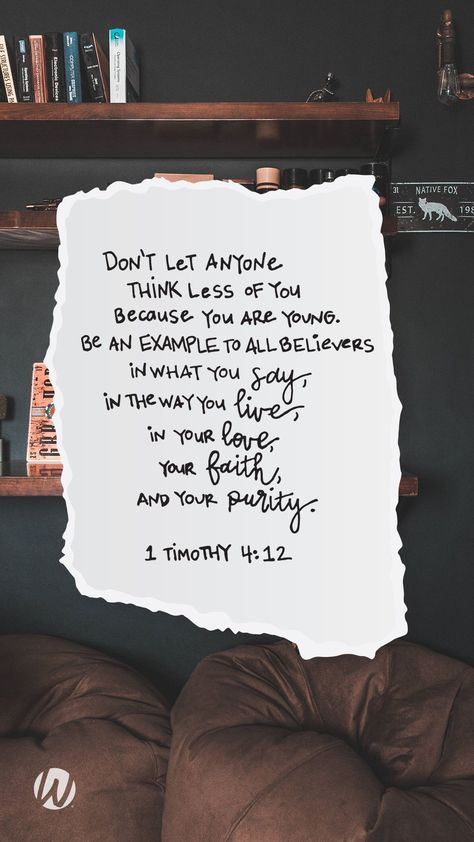 DON'T LET ANYONE
THINK LESS OF YOU
BECAUSE YOU ARE YOUNG.
BE AN EXAMPLE TO ALL BELIEVERS
IN WHAT YOU say,
IN THE WAY YOU live,
IN YOUR love,
YOUR faith,
AND YOUR purity.
1 TIMOTHY 4:12
NATIVE FOX
EST.
W